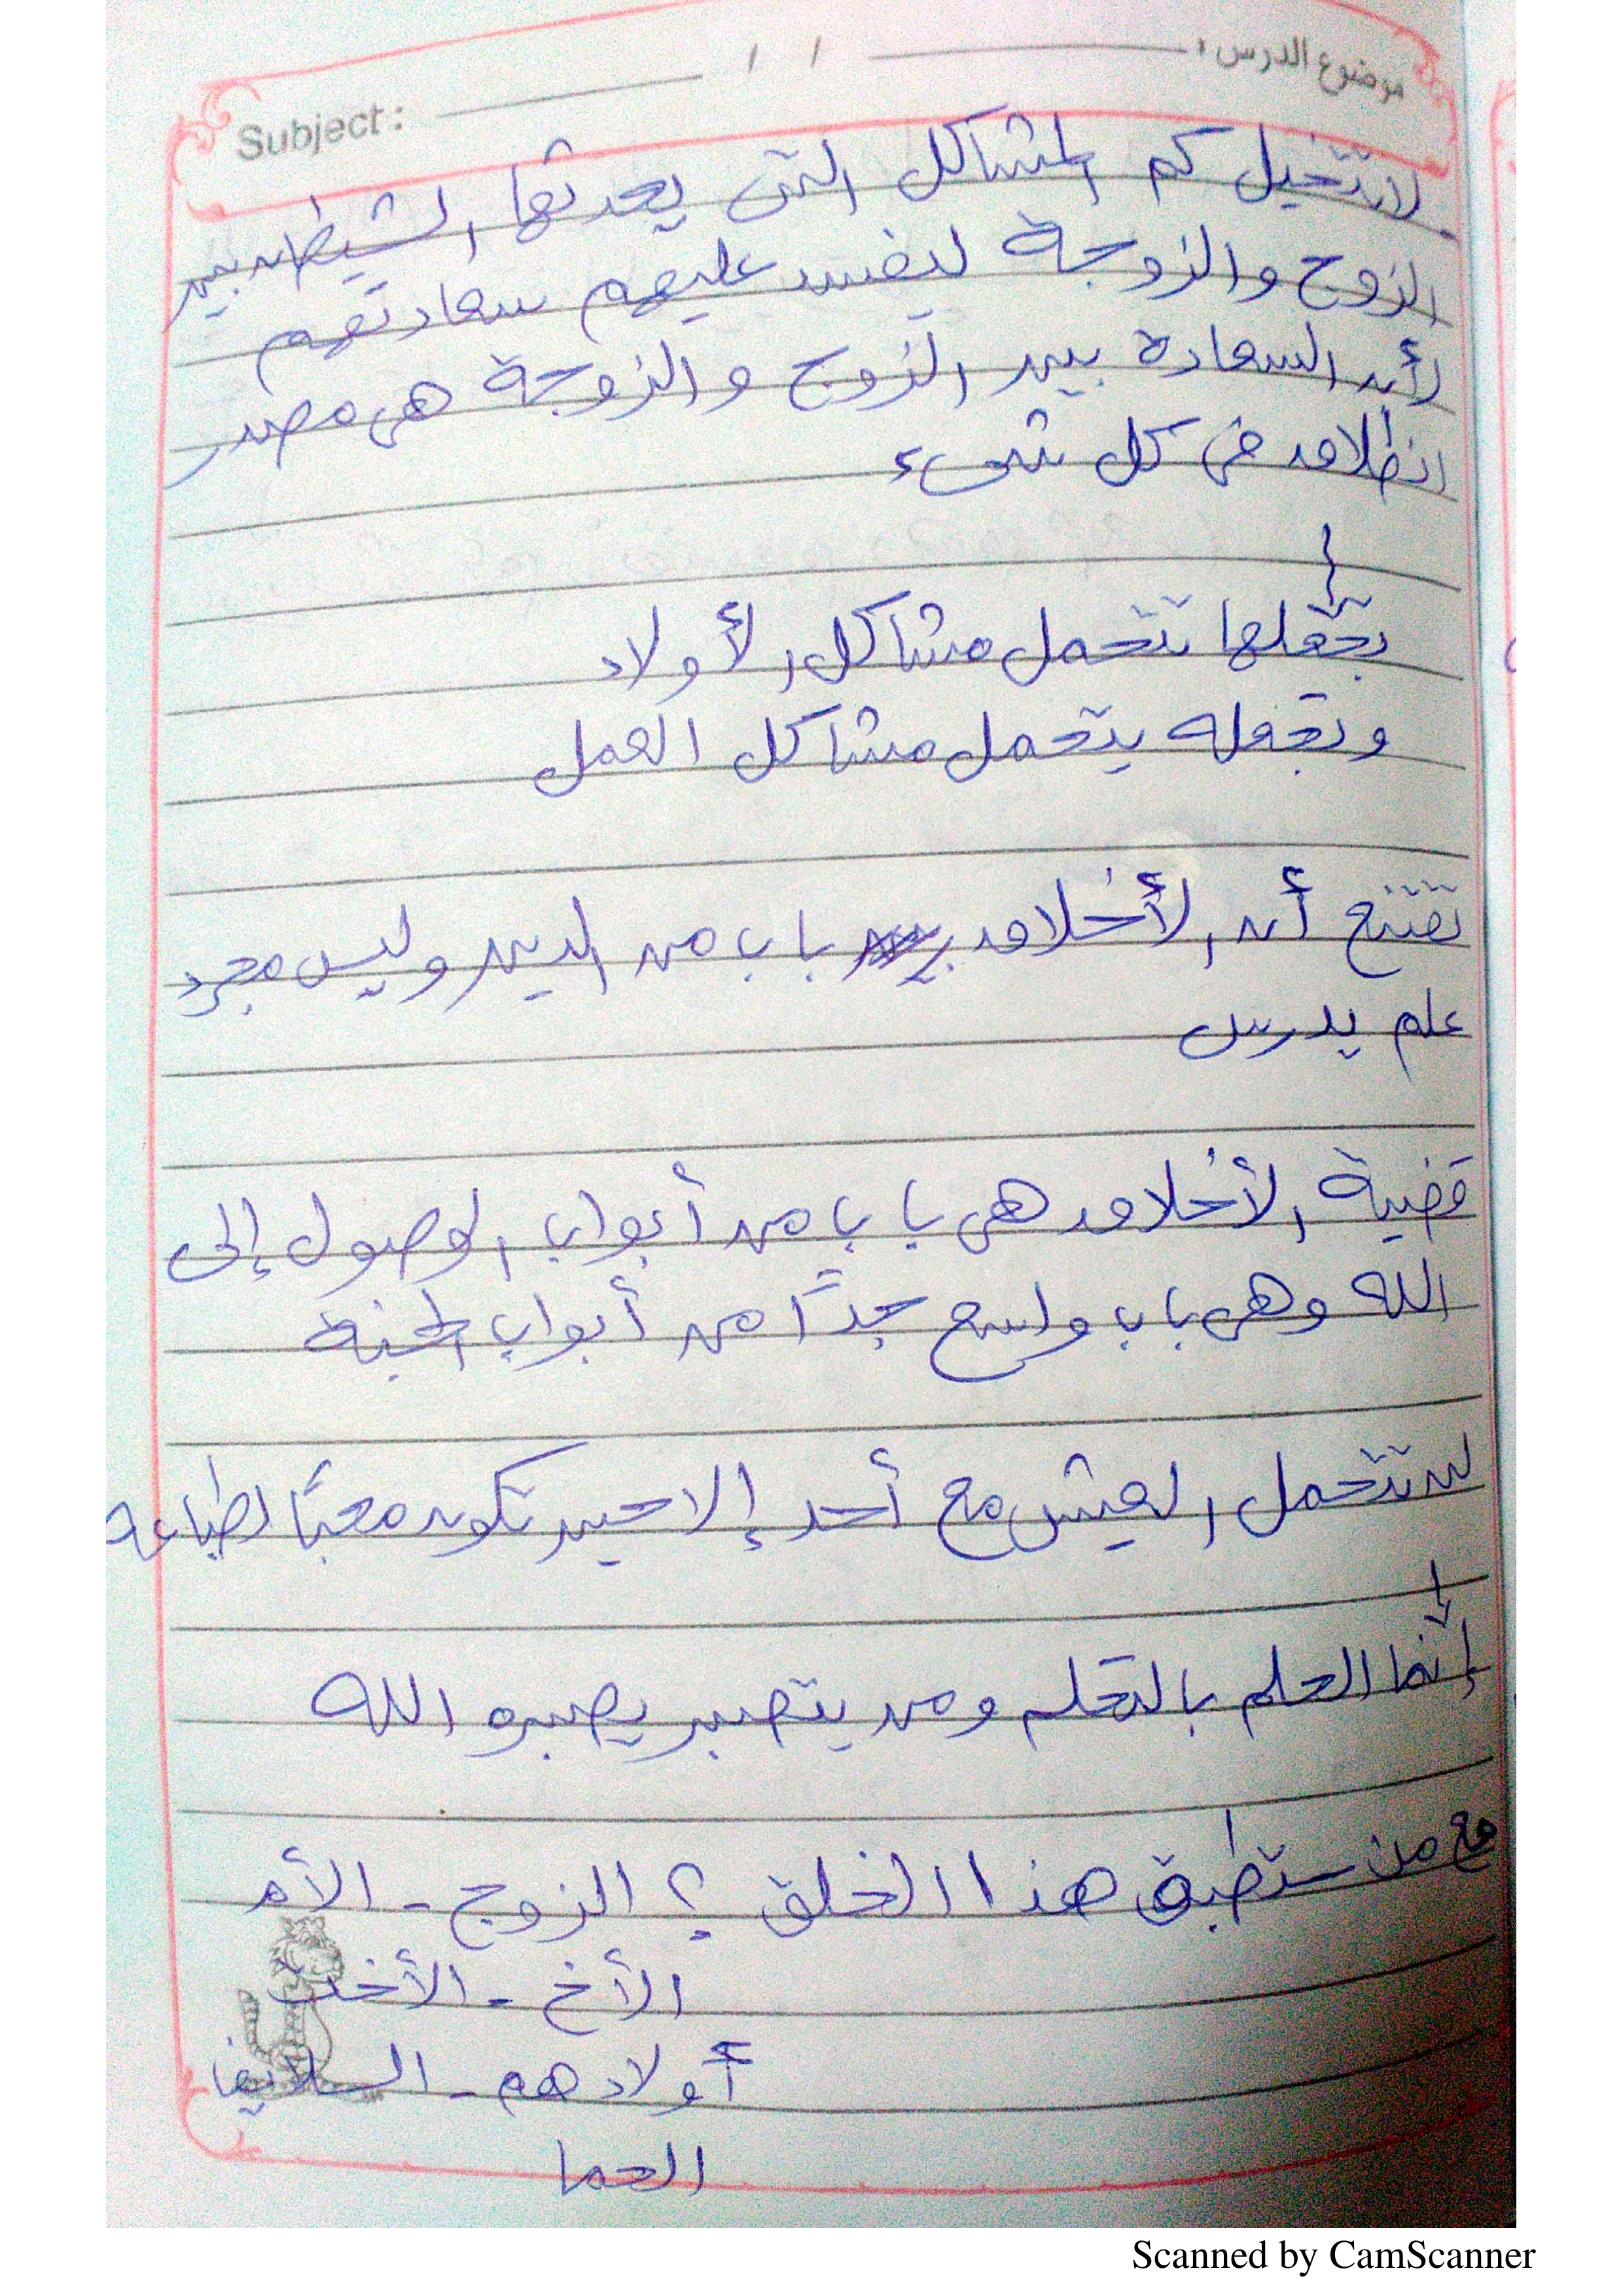 موضوع الدرس : / / Subject :
لا تتخيل كم المشاكل التى يحدثها الشيطان بين
الزوج والزوجة ليفسد عليهم سعادتهم
لأن السعادة بين الزوج والزوجة هى مصدر
انطلاق فى كل شىء
تجعلها تتحمل مشاكل الأولاد
وتجعله يتحمل مشاكل العمل
تقتنع أن الأخلاق باب من الدين وليس مجرد
علم يدرس
قضية الأخلاق هى باب من أبواب الوصول إلى
الله وهى باب واسع جدًا من أبواب الجنة
لن تتحمل العيش مع أحد إلا حين تكون محبًا لطباعه
إنما الحلم بالتحلم ومن يتصبر يصبره الله
مع من ستطبق هذا الخلق ؟ الزوج - الأم
الأخ - الأخت
أولادهم - السلايف
الحما
Scanned by CamScanner